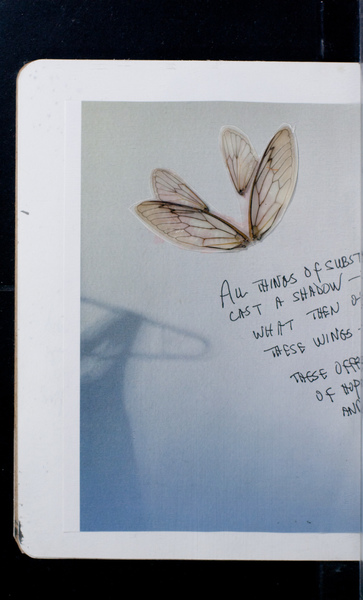 ALL THINGS OF SUBST
CAST A SHADOW –
WHAT THEN O
THESE WINGS
THESE OFFE
OF HOP
AND